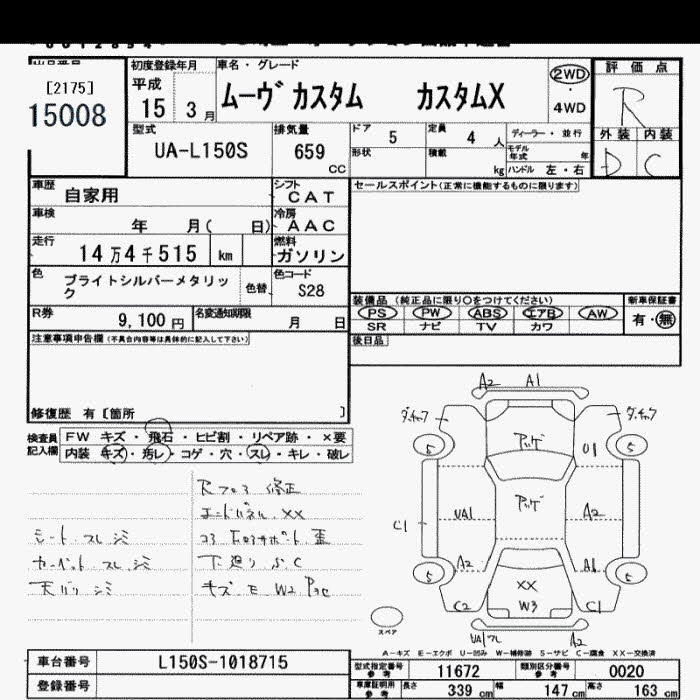 [2175]
15008
初度登録年月
平成
15 3 月
車名・グレード
ムーヴ カスタム カスタムX
2WD
4WD
評価点
R
外装 内装
D C
型式
UA-L150S
排気量
659
CC
ドア 5
定員 4 人
ディーラー・並行
形状
積載 kg
モデル年式 年
ハンドル 左・右
車歴
自家用
シフト
CAT
セールスポイント(正常に機能するものに限ります)
車検
年 月( 日)
冷房
AAC
走行
14 万 4 千 515 km
燃料
ガソリン
色
ブライトシルバーメタリック
色替
色コード
S28
R券
9,100 円
名変通知期限
月 日
装備品 (純正品に限り○をつけてください)
PS PW ABS エアB AW
SR ナビ TV カワ
新車保証書
有・無
後日品
注意事項申告欄 (不具合内容等は具体的に記入して下さい)
修復歴 有 [箇所 ]
検査員記入欄
FW キズ・飛石・ヒビ割・リペア跡・×要
内装 キズ・汚レ・コゲ・穴・スレ・キレ・破レ
修正
XX
シート スレ シミ
カーペット スレ シミ
天バリ シミ
下廻り C
キズ E W2
A2 A1
5 5
U1
UA1
A2
C1
A2
A1
5 5
XX
W3
C2
C1
A2
スペア
A-キズ E-エクボ U-凹み W-補修跡 S-サビ C-腐食 XX-交換済
車台番号
L150S-1018715
登録番号
型式指定番号 参考 11672
類別区分番号 参考 0020
車庫証明用 参考 長さ 339 cm 幅 147 cm 高さ 163 cm